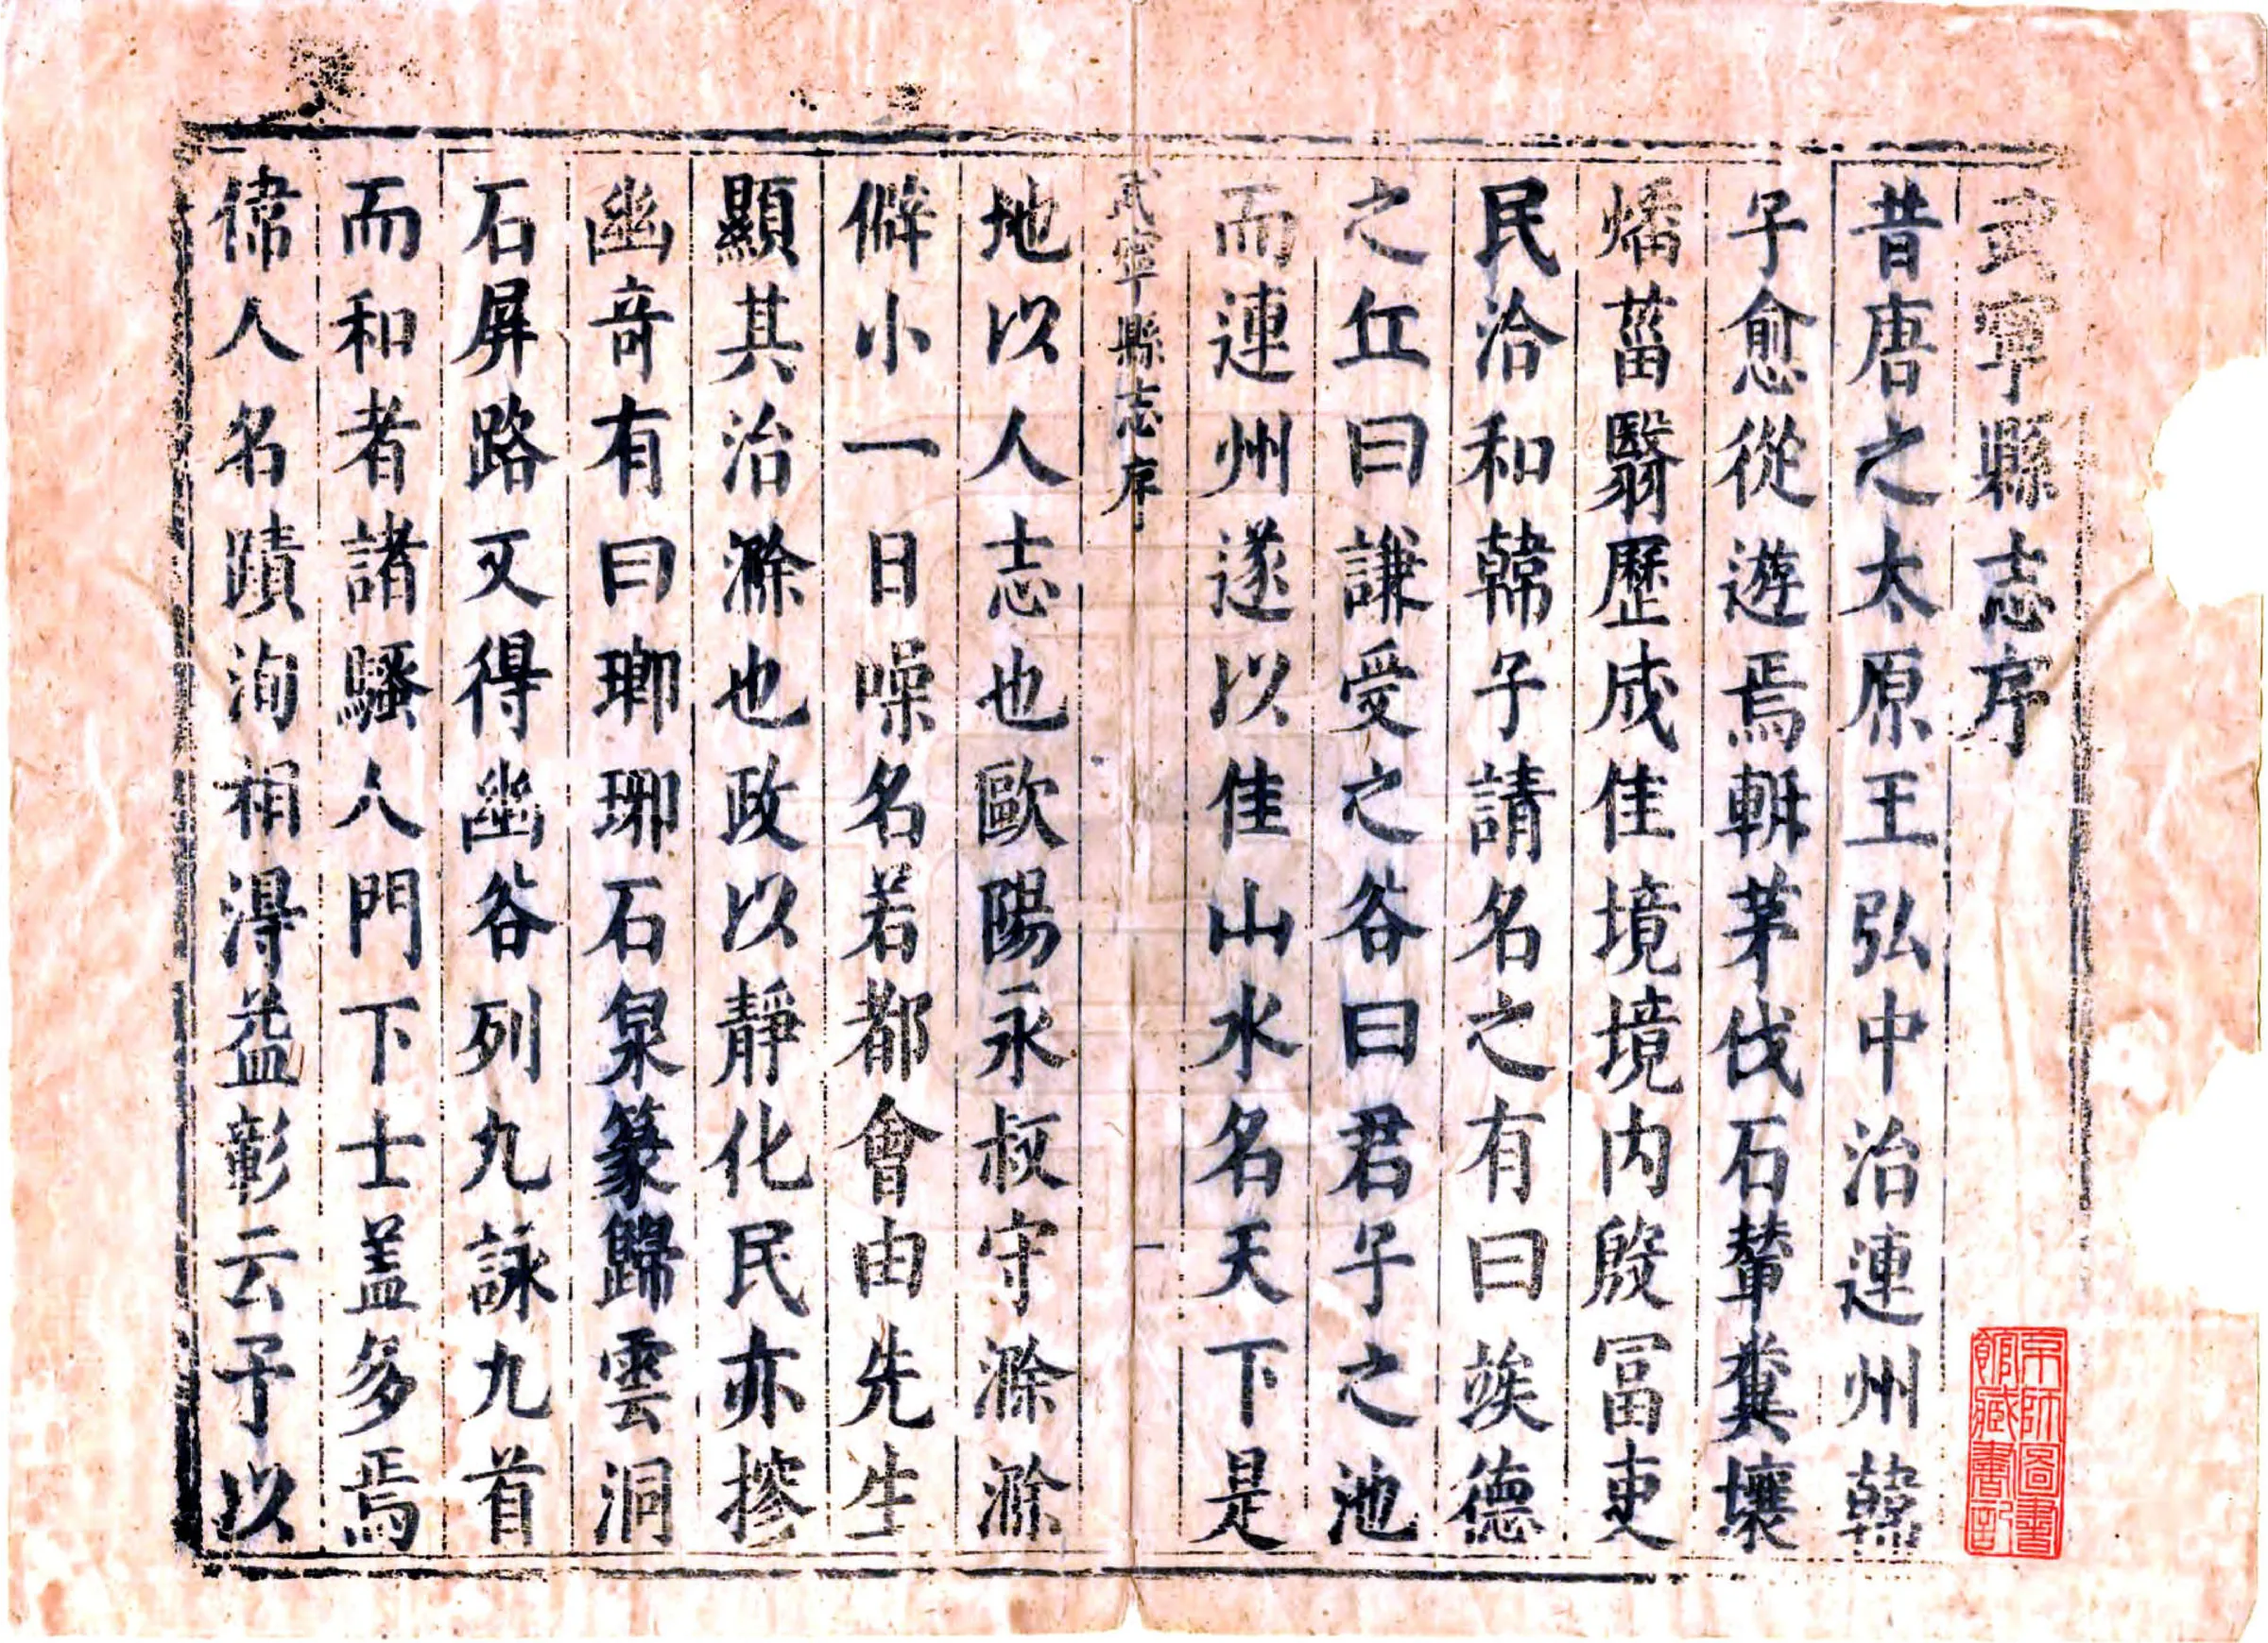 武寧縣志序
昔唐之太原王弘中治連州韓
子愈從遊焉斬茅伐石輦糞壤
燔菑翳歷成佳境境内殷冨吏
民洽和韓子請名之有曰竢德
之丘曰謙受之谷曰君子之池
而連州遂以佳山水名天下是
武寧縣志序
一
地以人志也歐陽永叔守滁滁
僻小一日噪名若都會由先生
顯其治滁也政以靜化民亦摻
幽竒有曰瑯琊石泉篆歸雲洞
石屏路又得幽谷列九詠九首
而和者諸騷人門下士盖多焉
偉人名蹟洵相得益彰云予以
京師圖書
館藏書記